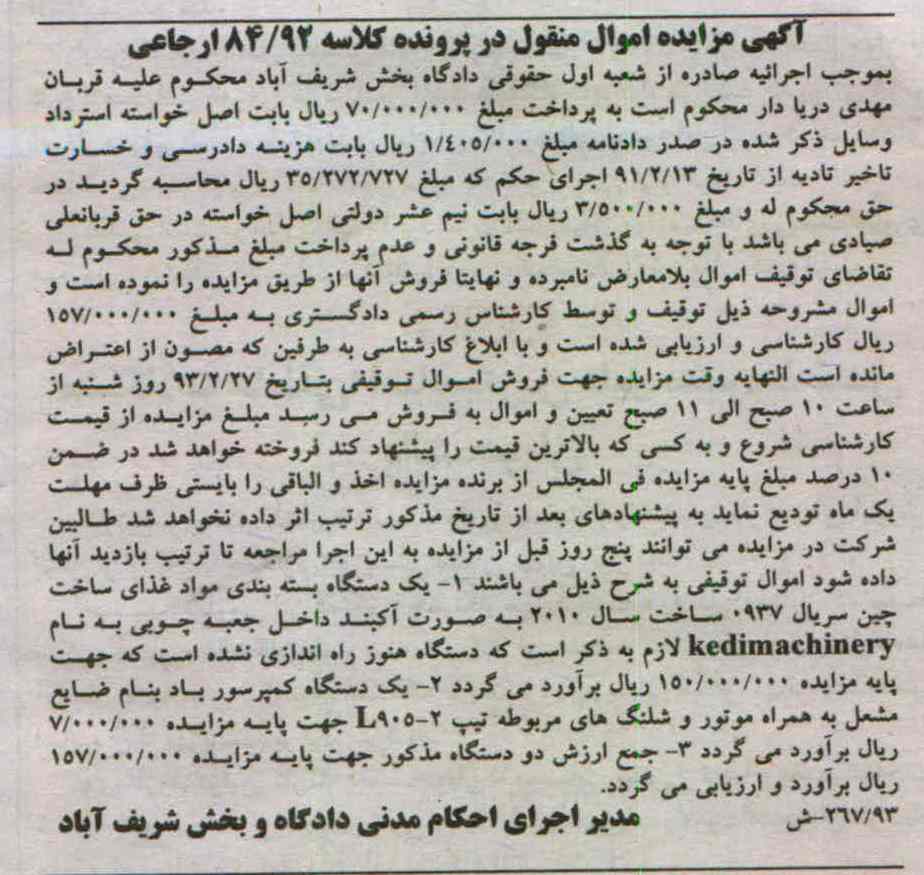 آگهی مزایده اموال منقول در پرونده کلاسه ۸۴/۹۲ ارجاعی
بموجب اجرائیه صادره از شعبه اول حقوقی دادگاه بخش شریف آباد محکوم علیه قربان
مهدی دریا دار محکوم است به پرداخت مبلغ ۷۰/۰۰۰/۰۰۰ ریال بابت اصل خواسته استرداد
وسایل ذکر شده در صدر دادنامه مبلغ ۱/۴۰۵/۰۰۰ ریال بابت هزینه دادرسی و خسارت
تاخیر تادیه از تاریخ ۹۱/۲/۱۳ اجرای حکم که مبلغ ۳۵/۲۷۲/۷۲۷ ریال محاسبه گردید در
حق محکوم له و مبلغ ۳/۵۰۰/۰۰۰ ریال بابت نیم عشر دولتی اصل خواسته در حق قربانعلی
صیادی می باشد با توجه به گذشت فرجه قانونی و عدم پرداخت مبلغ مذکور محکوم له
تقاضای توقیف اموال بلامعارض نامبرده و نهایتا فروش آنها از طریق مزایده را نموده است و
اموال مشروحه ذیل توقیف و توسط کارشناس رسمی دادگستری به مبلغ ۱۵۷/۰۰۰/۰۰۰
ریال کارشناسی و ارزیابی شده است و با ابلاغ کارشناسی به طرفین که مصون از اعتراض
مانده است النهایه وقت مزایده جهت فروش اموال توقیفی بتاریخ ۹۳/۲/۲۷ روز شنبه از
ساعت ۱۰ صبح الی ۱۱ صبح تعیین و اموال به فروش می رسد مبلغ مزایده از قیمت
کارشناسی شروع و به کسی که بالاترین قیمت را پیشنهاد کند فروخته خواهد شد در ضمن
۱۰ درصد مبلغ پایه مزایده فی المجلس از برنده مزایده اخذ و الباقی را بایستی ظرف مهلت
یک ماه تودیع نماید به پیشنهادهای بعد از تاریخ مذکور ترتیب اثر داده نخواهد شد طالبین
شرکت در مزایده می توانند پنج روز قبل از مزایده به این اجرا مراجعه تا ترتیب بازدید آنها
داده شود اموال توقیفی به شرح ذیل می باشند ۱- یک دستگاه بسته بندی مواد غذای ساخت
چین سریال ۰۹۳۷ ساخت سال ۲۰۱۰ به صورت آکبند داخل جعبه چوبی به نام
kedimachinery لازم به ذکر است که دستگاه هنوز راه اندازی نشده است که جهت
پایه مزایده ۱۵۰/۰۰۰/۰۰۰ ریال برآورد می گردد ۲- یک دستگاه کمپرسور باد بنام ضایع
مشعل به همراه موتور و شلنگ های مربوطه تیپ L۹۰۵-۲ جهت پایه مزایده ۷/۰۰۰/۰۰۰
ریال برآورد می گردد ۳- جمع ارزش دو دستگاه مذکور جهت پایه مزایده ۱۵۷/۰۰۰/۰۰۰
ریال برآورد و ارزیابی می گردد.
۲۶۷/۹۳-ش مدیر اجرای احکام مدنی دادگاه و بخش شریف آباد